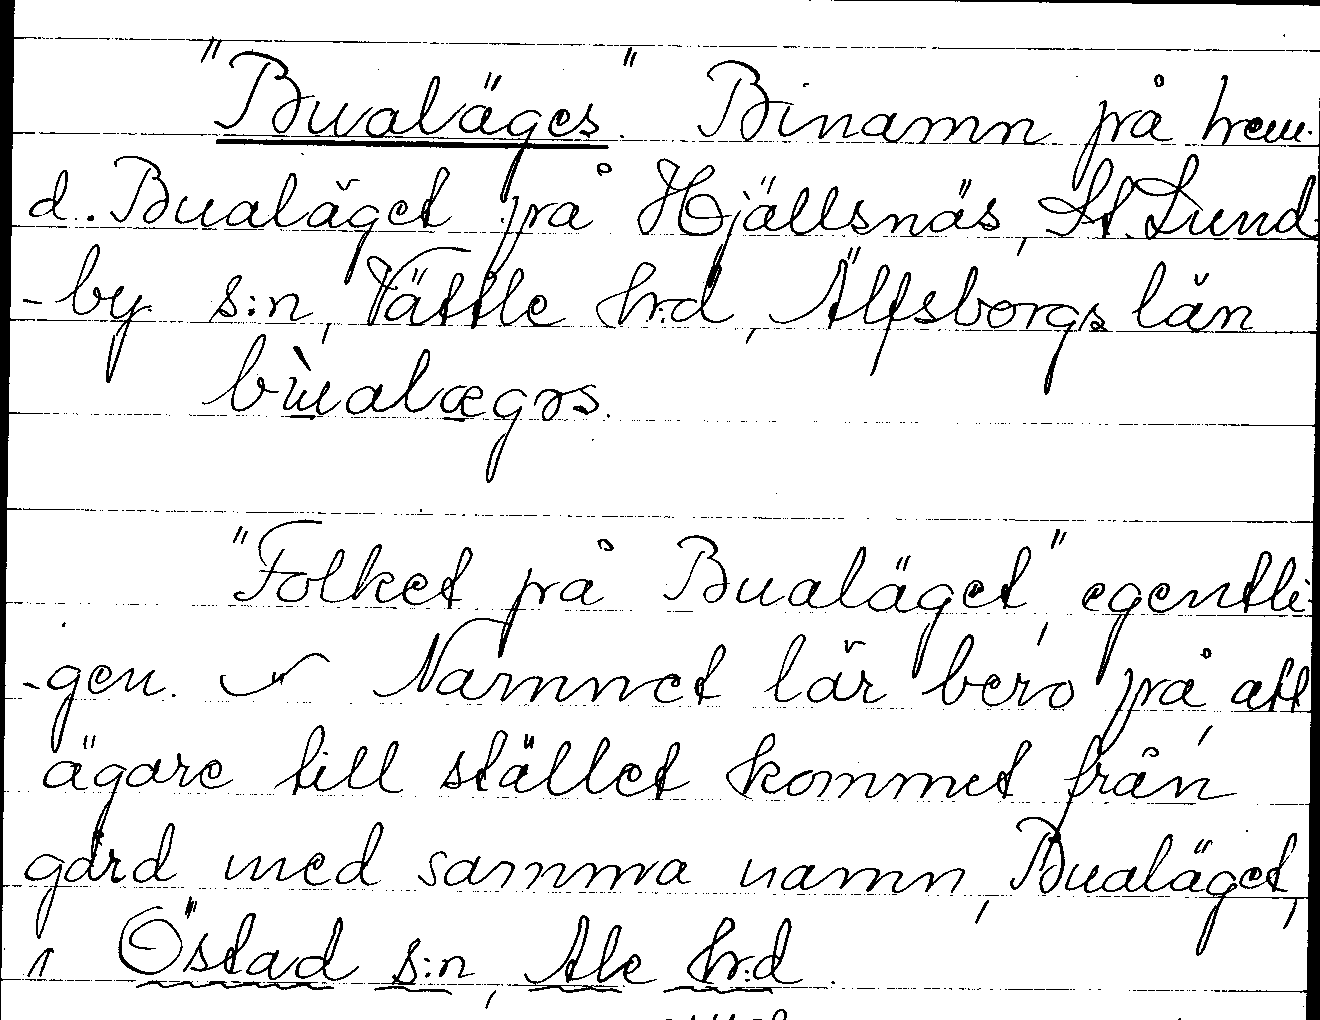 "Bualäges". Binamn på hem.
d. Bualäget på Hjällsnäs, St. Lund-
-by s:n, Vättle hrd, Älfsborgs län
bùalægrs.
"Folket på Bualäget", egentli-
-gen. Namnet lär bero på, att
ägare till stället kommet från
gård med samma namn, Bualäget,
i Östad s:n, Ale hrd.